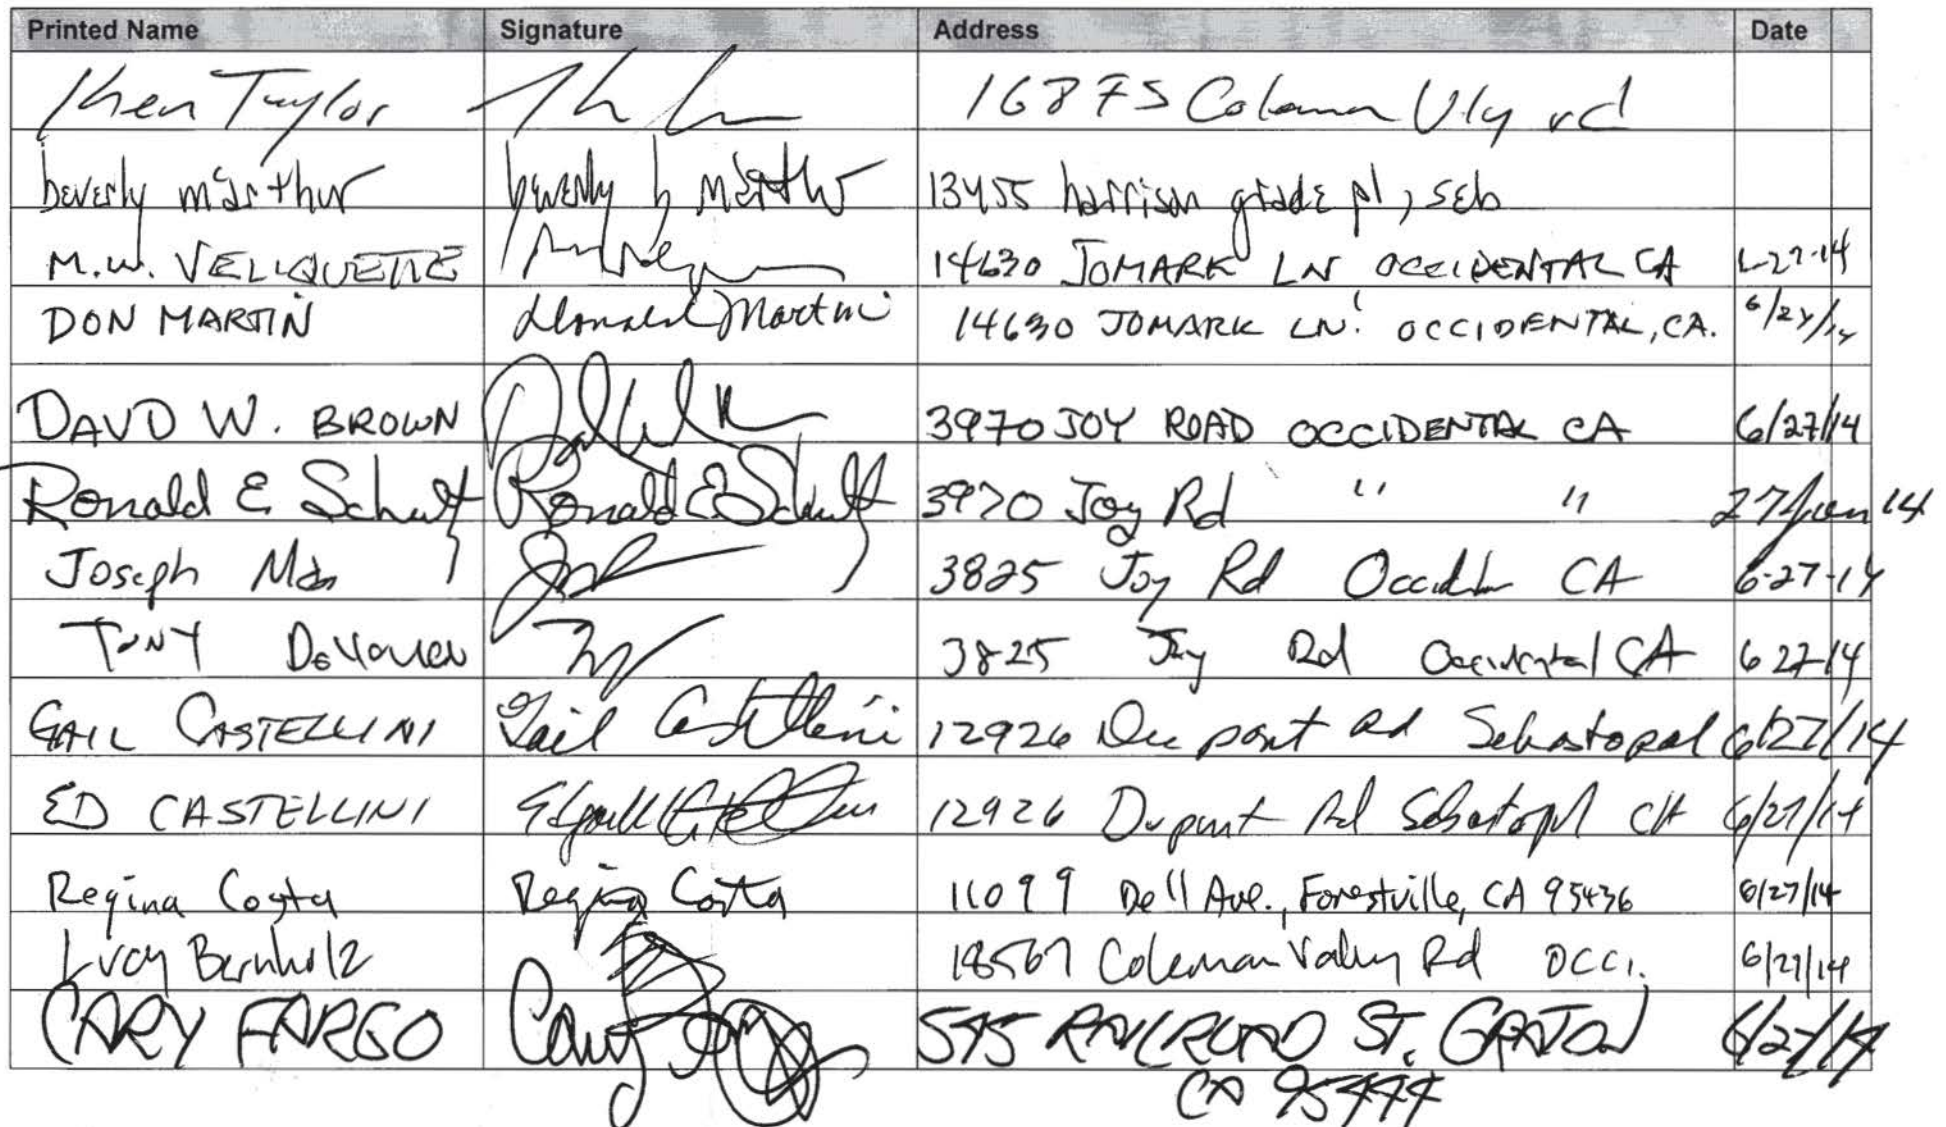 Printed Name Signature Address Date
Ken Taylor 16875 Coleman Vly rd
beverly mcarthur beverly h mcarthur 13455 harrison grade pl, seb
M.W. VELIQUETTE 14630 JOMARK LN OCCIDENTAL CA 6-27-14
DON MARTIN Donald Martin 14630 JOMARK LN. OCCIDENTAL, CA. 6/27/14
DAVD W. BROWN 3970 JOY ROAD OCCIDENTAL CA 6/27/14
Ronald E Schultz Ronald E Schultz 3970 Joy Rd " " 27 Jun 14
Joseph 3825 Joy Rd CA 6-27-14
TONY 3825 Joy Rd Occidental CA 6 27-14
GAIL CASTELLINI Gail Castellini 12926 Du pont Rd Sebastopol 6/27/14
ED CASTELLINI 12926 Dupont Rd Sebastopol CA 6/27/14
Regina Costa Regina Costa 11099 Dell Ave., Forestville, CA 95436 6/27/14
Lucy Bernholz 18567 Coleman Valley Rd OCCI. 6/27/14
CARY FARGO Cary 595 RAILROAD ST. GRATON 6/27/14
CA 95444